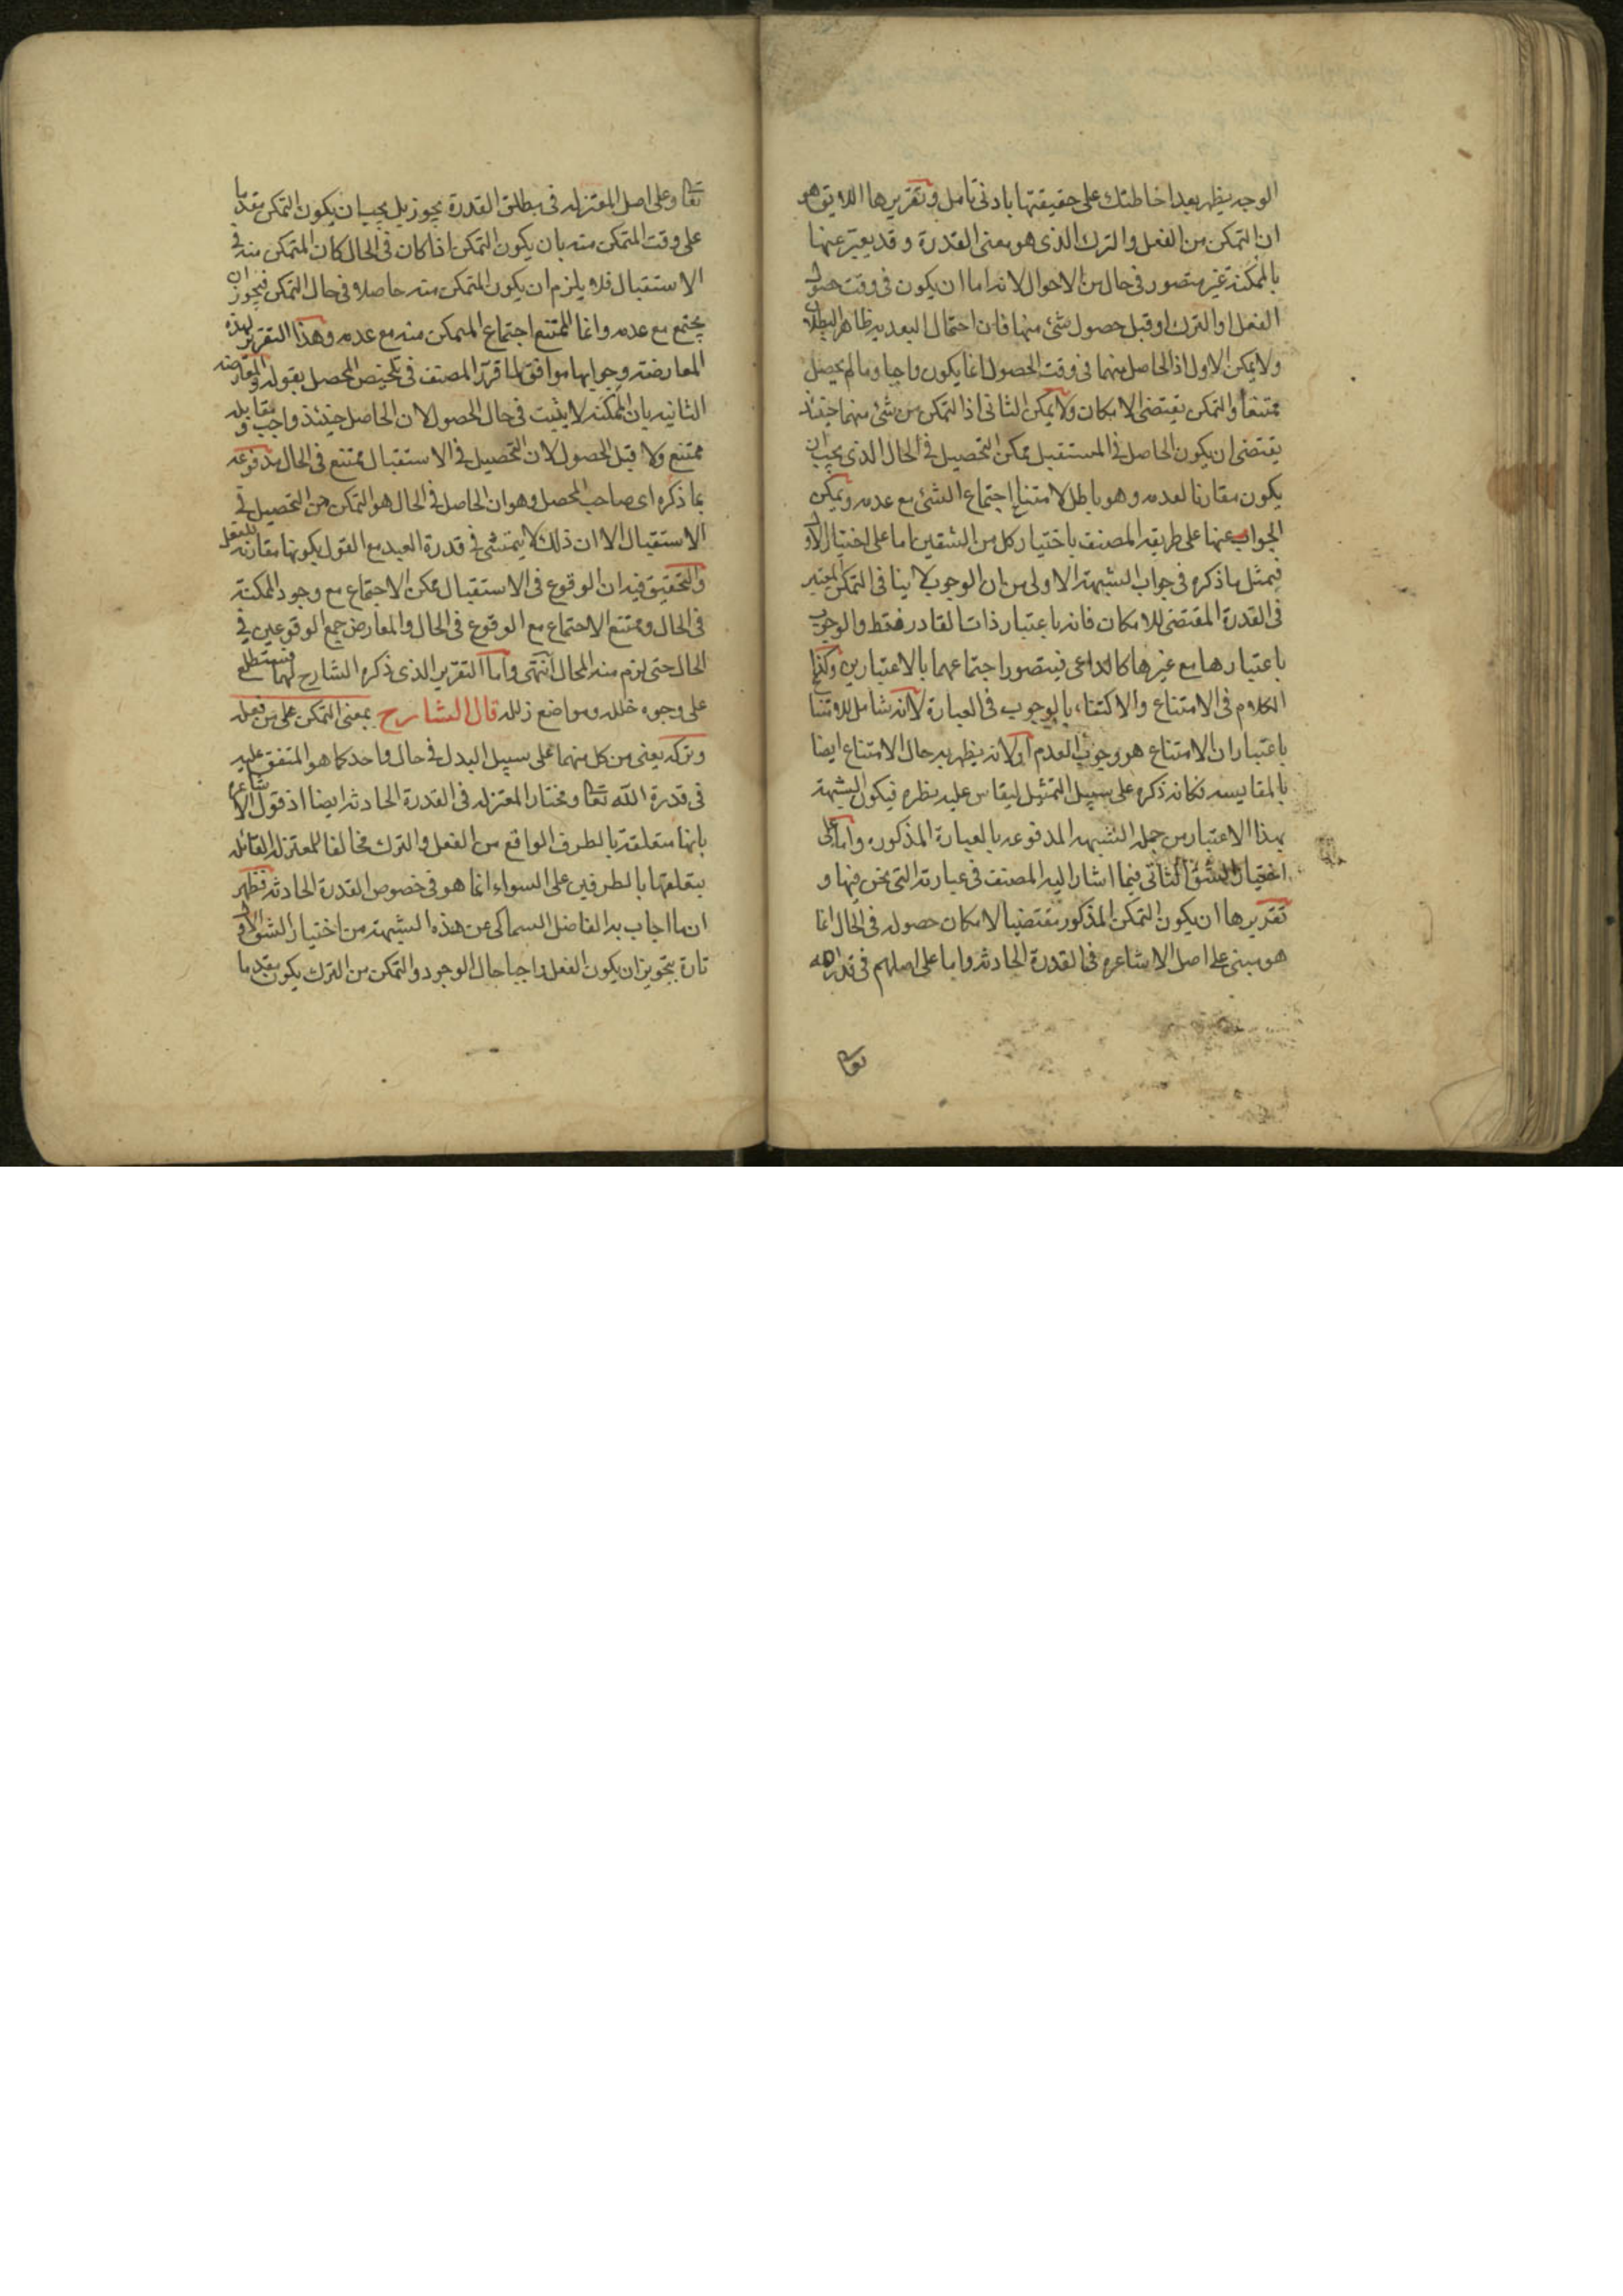 الوجه يظهر بعد احاطتك على حقيقتها بادنى تامل وتقريرها اللايق هو
ان التمكن من الفعل والترك الذى هو معنى القدرة وقد يعبر عنها
بالمكنة غير متصور فى حال من الاحوال لانه اما ان يكون فى وقت حصول
الفعل او الترك او قبل حصول شئ منها فان احتمال البعدية ظاهر البطلان
ولا يمكن الاول اذ الحاصل منهما فى وقت الحصول انما يكون واجبا وما لم يحصل
ممتنعا والتمكن يقتضى الامكان ولا يمكن الثانى اذ التمكن من شئ منهما حينئذ
يقتضى ان يكون الحاصل فى المستقبل ممكن التحصيل فى الحال الذى يجب ان
يكون مقارنا لعدمه وهو باطل لامتناع اجتماع الشئ مع عدمه ويمكن
الجواب عنها على طريقه المصنف باختيار كل من الشقين اما على اختيار الاول
فبمثل ما ذكره فى جواب الشبهة الاولى من ان الوجوب لا ينافى التمكن المعتبر
فى القدرة المقتضى للامكان فانه باعتبار ذات القادر فقط والوجوب
باعتبارها مع غيرها كالداعى فيتصور اجتماعهما بالاعتبارين وكذا
الكلام فى الامتناع والاكتفاء بالوجوب فى العبارة لانه شامل للامتناع
باعتبار ان الامتناع هو وجوب العدم او لانه يظهر به حال الامتناع ايضا
بالمقايسه فكانه ذكره على سبيل التمثيل ليقاس عليه نظره فيكون الشبهة
بهذا الاعتبار من جمله الشبهه المدفوعه بالعبارة المذكوره واما على
اختيار الشق الثانى فيما اشار اليه المصنف فى عبارته التى نحن فيها و
تقريرها ان يكون التمكن المذكور مقتضيا لامكان حصوله فى الحال انما
هو مبنى على اصل الاشاعره فى القدرة الحادثه واما على اصلهم فى قدرة الله
تعالى
تعا وعلى اصل المعتزله فى مطلق القدرة يجوز بل يجب ان يكون التمكن مقدما
على وقت المتمكن منه بان يكون التمكن اذا كان فى الحال كان المتمكن منه فى
الاستقبال فلا يلزم ان يكون المتمكن منه حاصلا فى حال التمكن فيجوز ان
يجتمع مع عدمه وانما الممتنع اجتماع المتمكن منه مع عدمه وهذا التقرير لهذه
المعارضة وجوابها موافق لما قرر المصنف فى تلخيص المحصل بقوله والمعارضه
الثانيه بان المكنه لا يثبت فى حال الحصول لان الحاصل حينئذ واجب ومقابله
ممتنع ولا قبل الحصول لان التحصيل فى الاستقبال ممتنع فى الحال مدفوعه
بما ذكره اى صاحب المحصل وهو ان الحاصل فى الحال هو التمكن من التحصيل فى
الاستقبال الا ان ذلك لا يتمشى فى قدرة العبد مع القول بكونها مقارنه للفعل
والتحقيق فيه ان الوقوع فى الاستقبال ممكن الاجتماع مع وجود المكنة
فى الحال وممتنع الاجتماع مع الوقوع فى الحال والمعارض جمع الوقوعين فى
الحال حتى لزم منه المحال انتهى واما التقرير الذى ذكره الشارح لهما فستطلع
على وجوه خلله ومواضع زلله قال الشارح بمعنى التمكن على من فعله
وتركه يعنى من كل منهما على سبيل البدل فى حال واحد كما هو المتفق عليه
فى قدرة الله تعا ومختار المعتزله فى القدرة الحادثه ايضا اذ قول الاشاعره
بانها متعلقة بالطرف الواقع من الفعل والترك مخالفا للمعتزله القائله
بتعلقها بالطرفين على السواء انما هو فى خصوص القدرة الحادثه فظهر
ان ما اجاب به الفاضل السماكى عن هذه الشبهة من اختيار الشق الاول
تارة بتجويز ان يكون الفعل واجبا حال الوجود والتمكن من الترك يكون مقدما